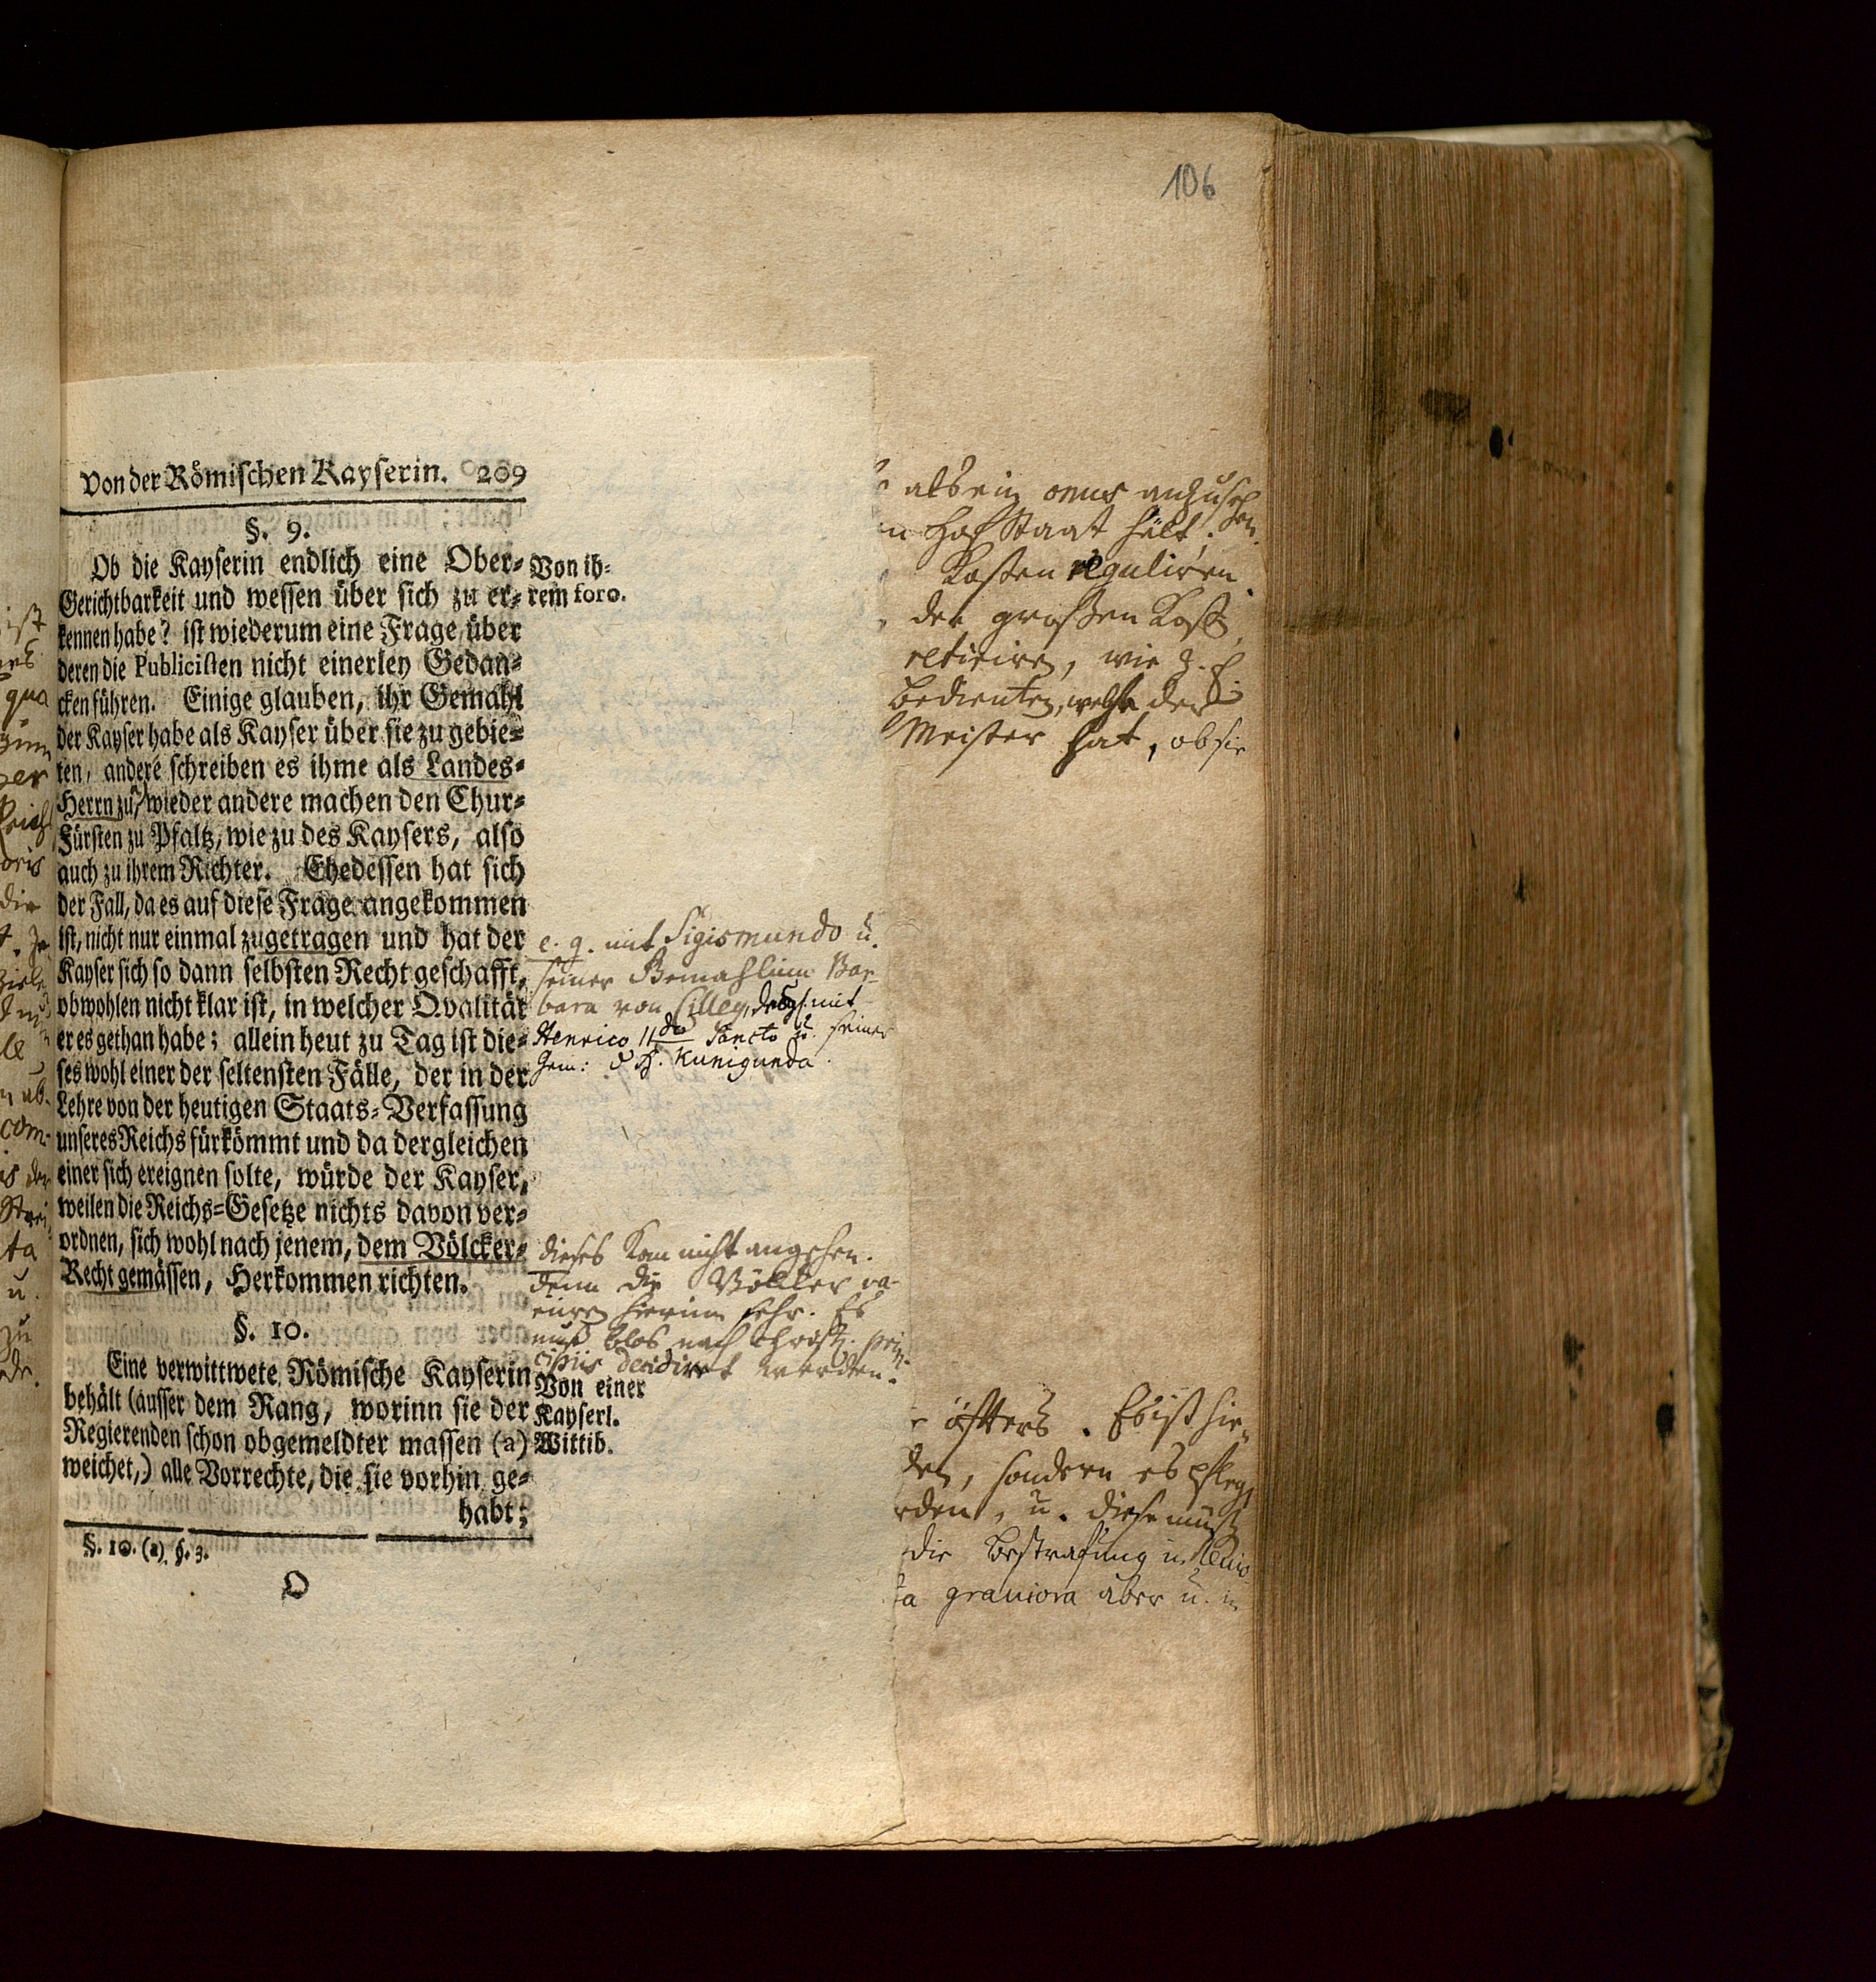 106
Von der Römischen Kayserin. 209
§. 9.
Ob die Kayserin endlich eine Ober-
Gerichtbarkeit und wessen über sich zu er-
kennen habe? ist wiederum eine Frage, über
deren die Publicisten nicht einerley Gedan-
cken führen. Einige glauben, ihr Gemahl
der Kayser habe als Kayser über sie zu gebie-
ten, andere schreiben es ihme als Landes-
Herrn zu, wieder andere machen den Chur-
Fürsten zu Pfaltz, wie zu des Kaysers, also
auch zu ihrem Richter. Ehedessen hat sich
der Fall, da es auf diese Frage angekommen
ist, nicht nur einmal zugetragen und hat der
Kayser sich so dann selbsten Recht geschafft,
obwohlen nicht klar ist, in welcher Qvalität
er es gethan habe; allein heut zu Tag ist die-
ses wohl einer der seltensten Fälle, der in der
Lehre von der heutigen Staats-Verfassung
unseres Reichs fürkömmt und da dergleichen
einer sich ereignen solte, würde der Kayser,
weilen die Reichs-Gesetze nichts davon ver-
ordnen, sich wohl nach jenem, dem Völcker-
Recht gemässen, Herkommen richten.
§. 10.
Eine verwittwete Römische Kayserin
behält (ausser dem Rang, worinn sie der
Regierenden schon obgemeldter massen (a)
weichet,) alle Vorrechte, die sie vorhin ge-
habt;
§. 10. (a) §. 3.
O
Von ih-
rem foro.
e. g. mit Sigismundo u.
seiner Gemahlinn Bar-
bara von Cilley, desgl. mit
Henrico II do Sancto u. seiner
Gem: d. H. Kunigunda.
dieses kan nicht angehen.
denn die Völker va-
riiren hierinn sehr. Es
muß blos nach christl. prin-
cipiis decidiret werden.
Von einer
Kayserl.
Wittib.
als ein onus anzusehen
n Hof Staat hält.
Kosten reguliren.
der großen Kost
retiriren, wie z. E.
Bedienten, welche der
Meister hat, ob sie
öffters. Es ist hie-
den, sondern es pfleg
rden, u. diese muß
die Bestrafung in levio-
ta graviora aber u. in